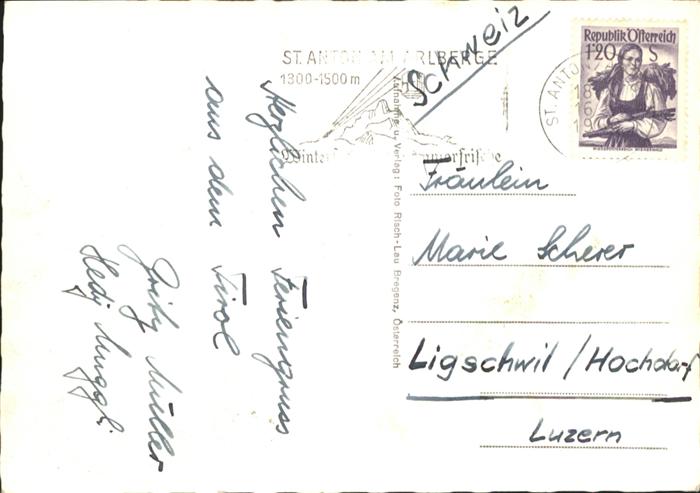 Herzlichen Feriengruss
aus dem Tirol
Fritz Müller
Hedy Muggli
Aufnahme u. Verlag: Foto Risch-Lau Bregenz, Österreich
ST. ANTON AM ARLBERGE
1300-1500 m
Schweiz
Republik Österreich
1·20 S
ST. ANTON
18
Fräulein
Marie Scherer
Ligschwil / Hochdorf
Luzern